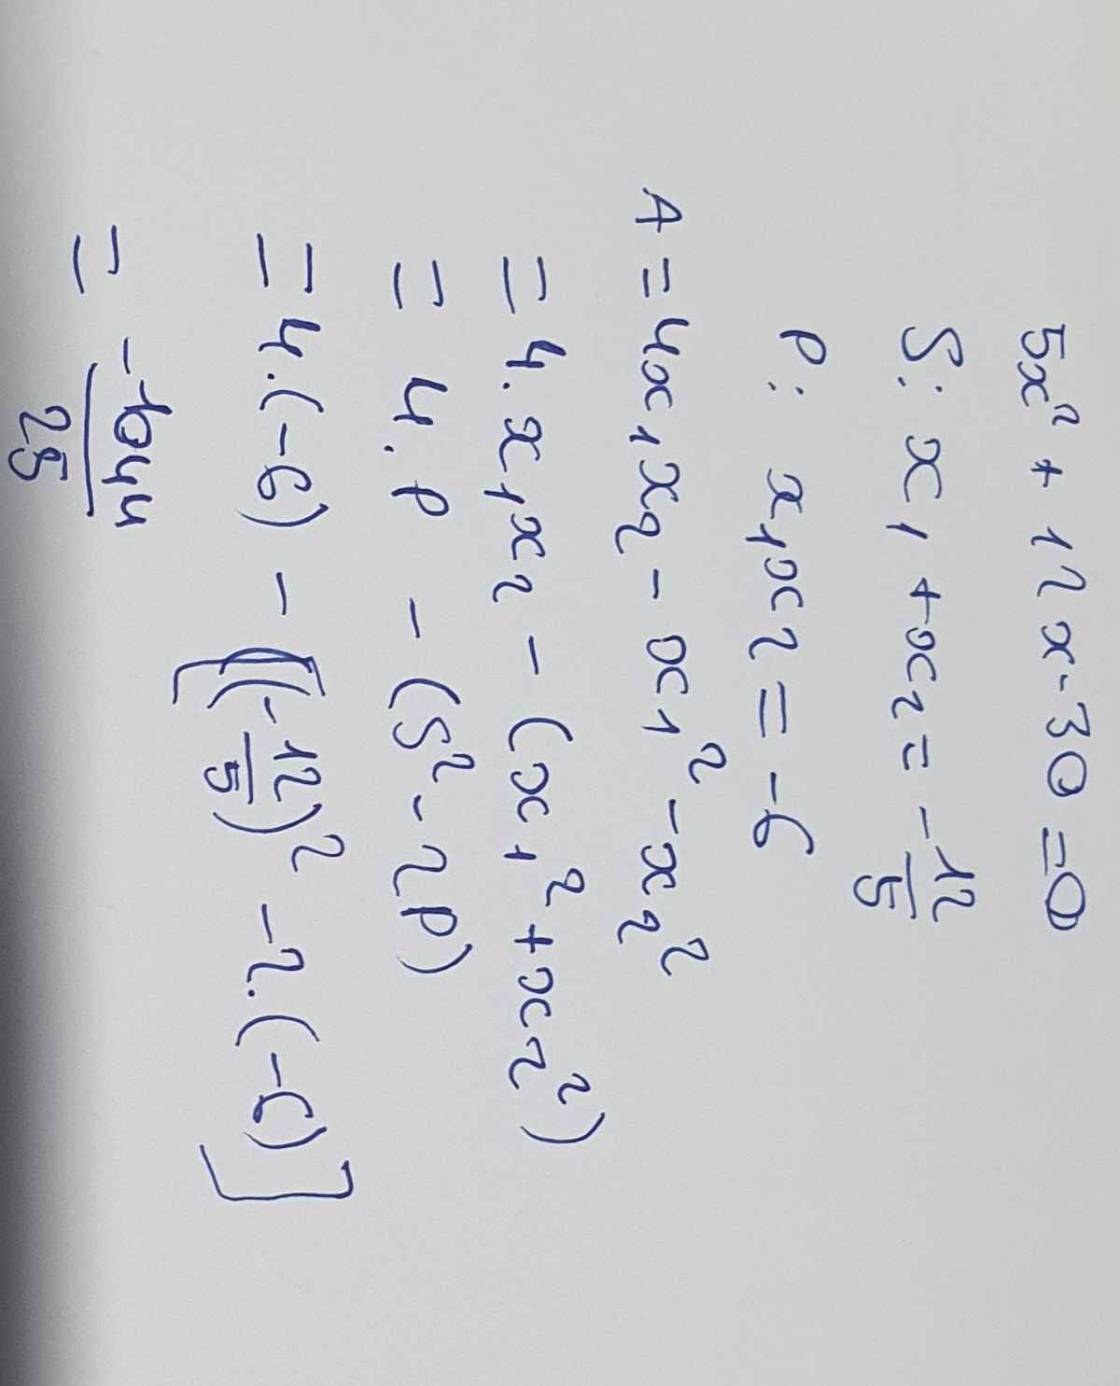 5x² + 12x - 30 = 0
S: x₁ + x₂ = -12/5
P: x₁x₂ = -6
A = 4x₁x₂ - x₁² - x₂²
= 4.x₁x₂ - (x₁² + x₂²)
= 4.P - (S² - 2P)
= 4.(-6) - [(-12/5)² - 2.(-6)]
= -1044/25